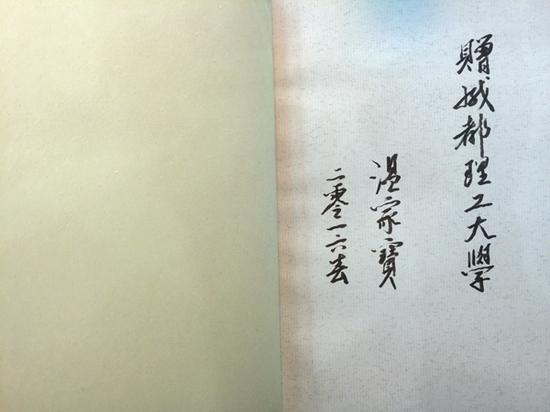 贈成都理工大學
溫家寶
二零一六春